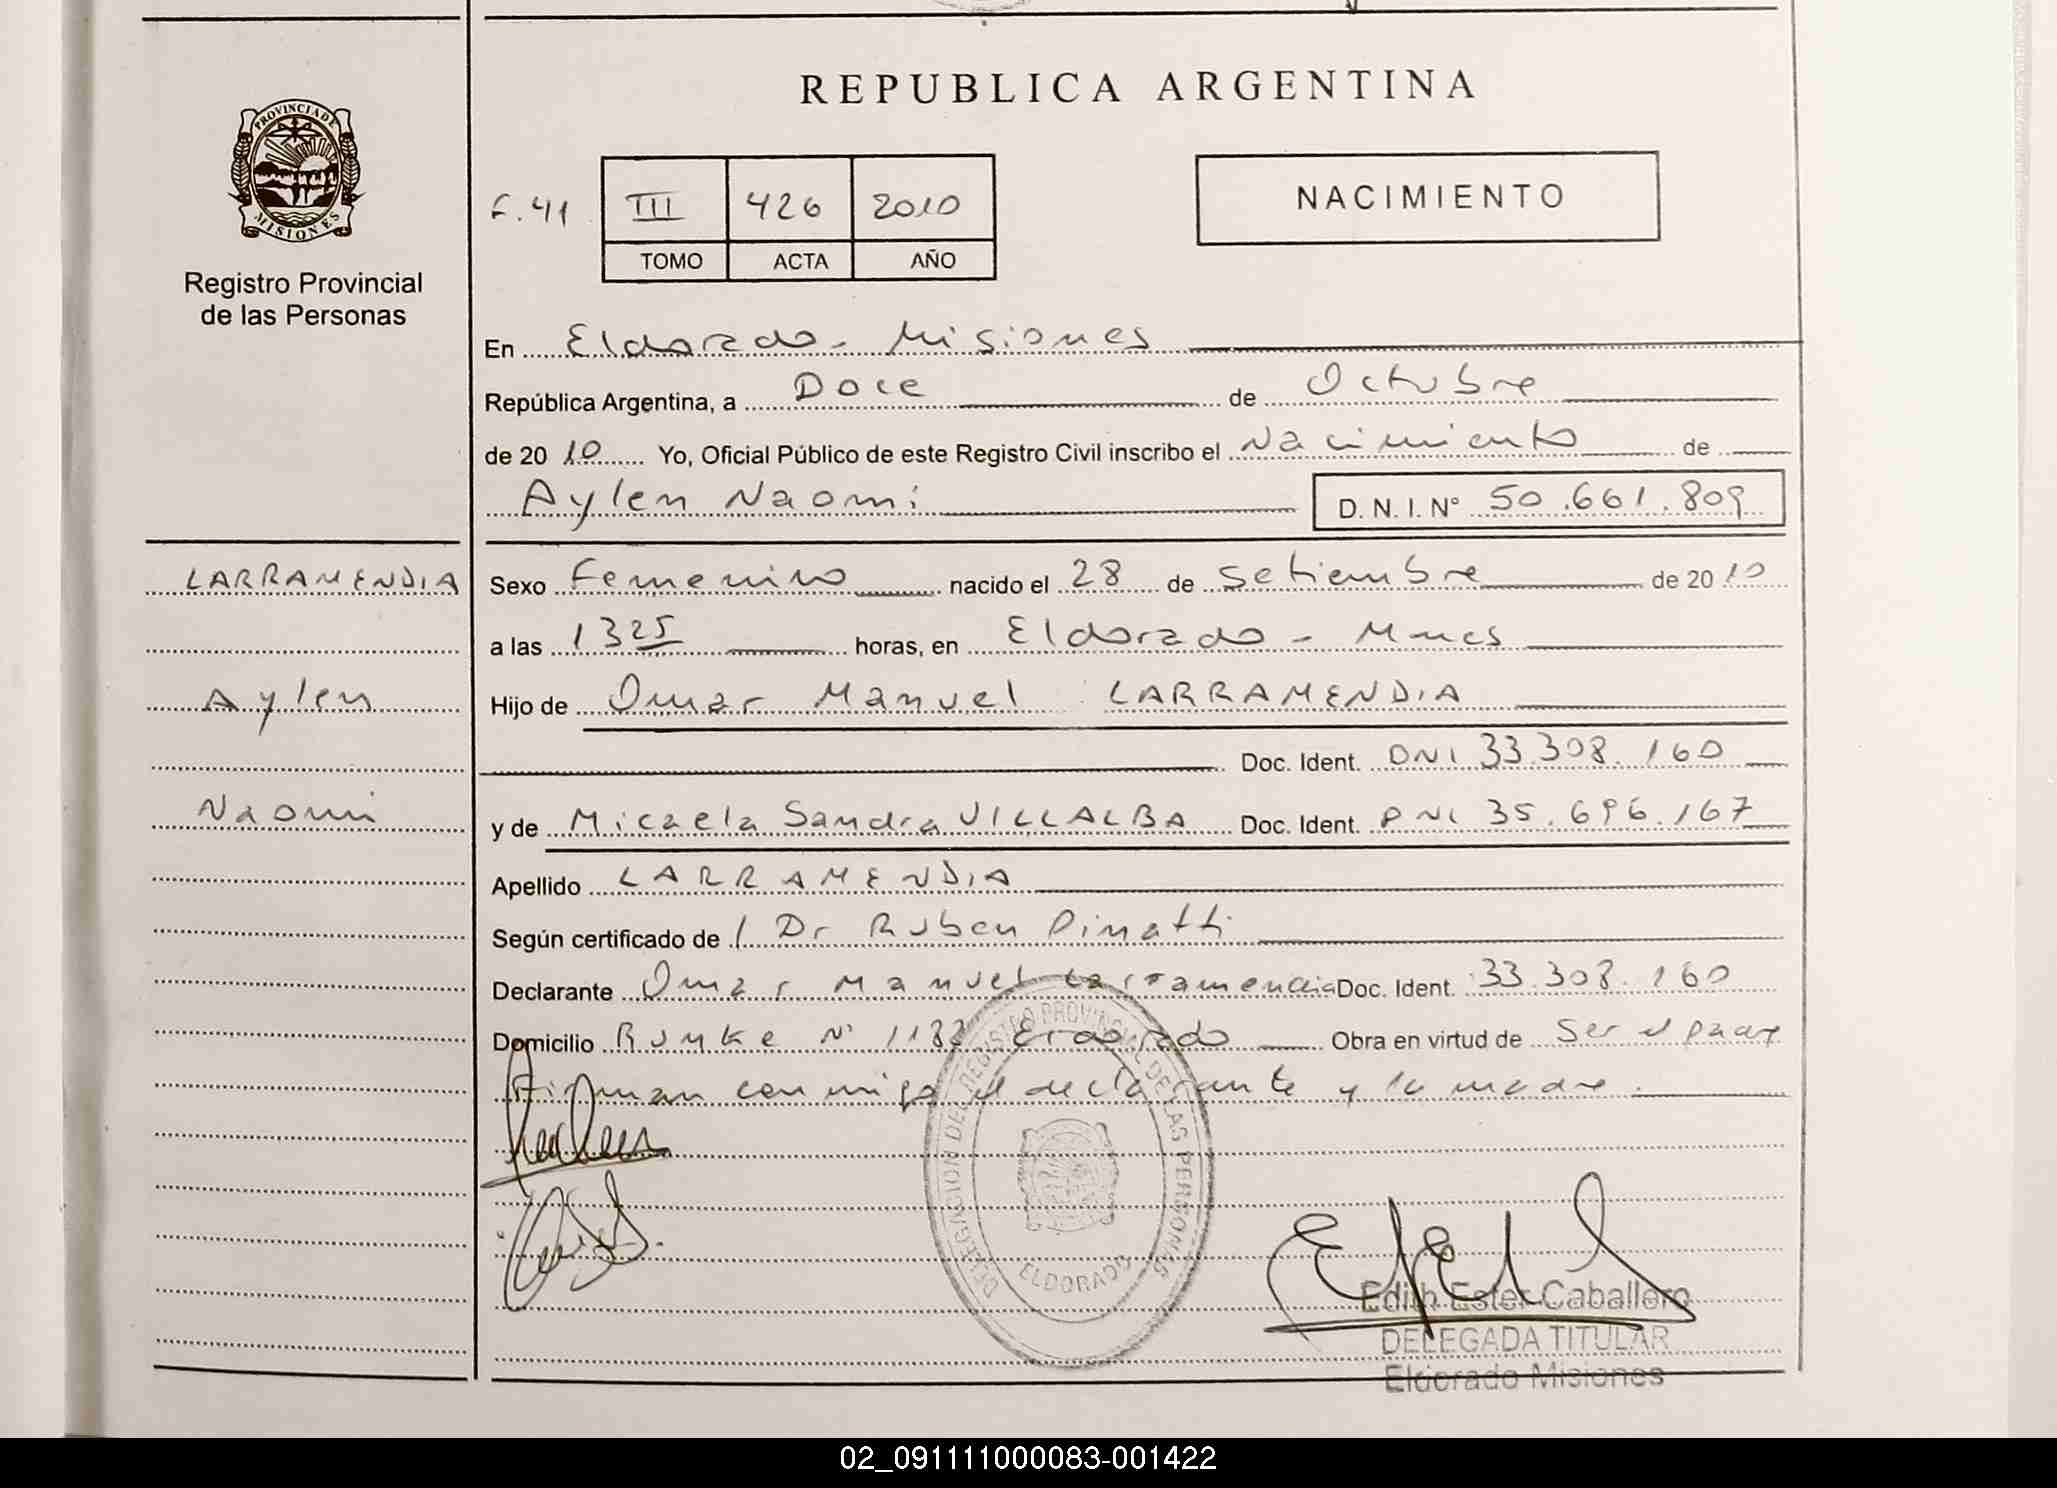 REPUBLICA ARGENTINA
PROVINCIA DE
MISIONES
Registro Provincial
de las Personas
F. 41 III 426 2010
TOMO ACTA AÑO
NACIMIENTO
En Eldorado - Misiones
República Argentina, a Doce de Octubre
de 2010 Yo, Oficial Público de este Registro Civil inscribo el Nacimiento de
Aylen Naomi D. N. I. N° 50.661.809
LARRAMENDIA
Aylen
Naomi
Sexo Femenino nacido el 28 de Setiembre de 2010
a las 1325 horas, en Eldorado - Mnes
Hijo de Omar Manuel LARRAMENDIA
Doc. Ident. DNI 33.308.160
y de Micaela Sandra VILLALBA Doc. Ident. DNI 35.696.167
Apellido LARRAMENDIA
Según certificado de / Dr Ruben Dimatti
Declarante Omar Manuel Larramendia Doc. Ident. 33.308.160
Domicilio N° Eldorado Obra en virtud de Ser el padre
Firman conmigo el declarante y la madre.
DELEGACION DEL REGISTRO PROVINCIAL DE LAS PERSONAS
ELDORADO
Edith Ester Caballero
DELEGADA TITULAR
Eldorado Misiones
02_091111000083-001422